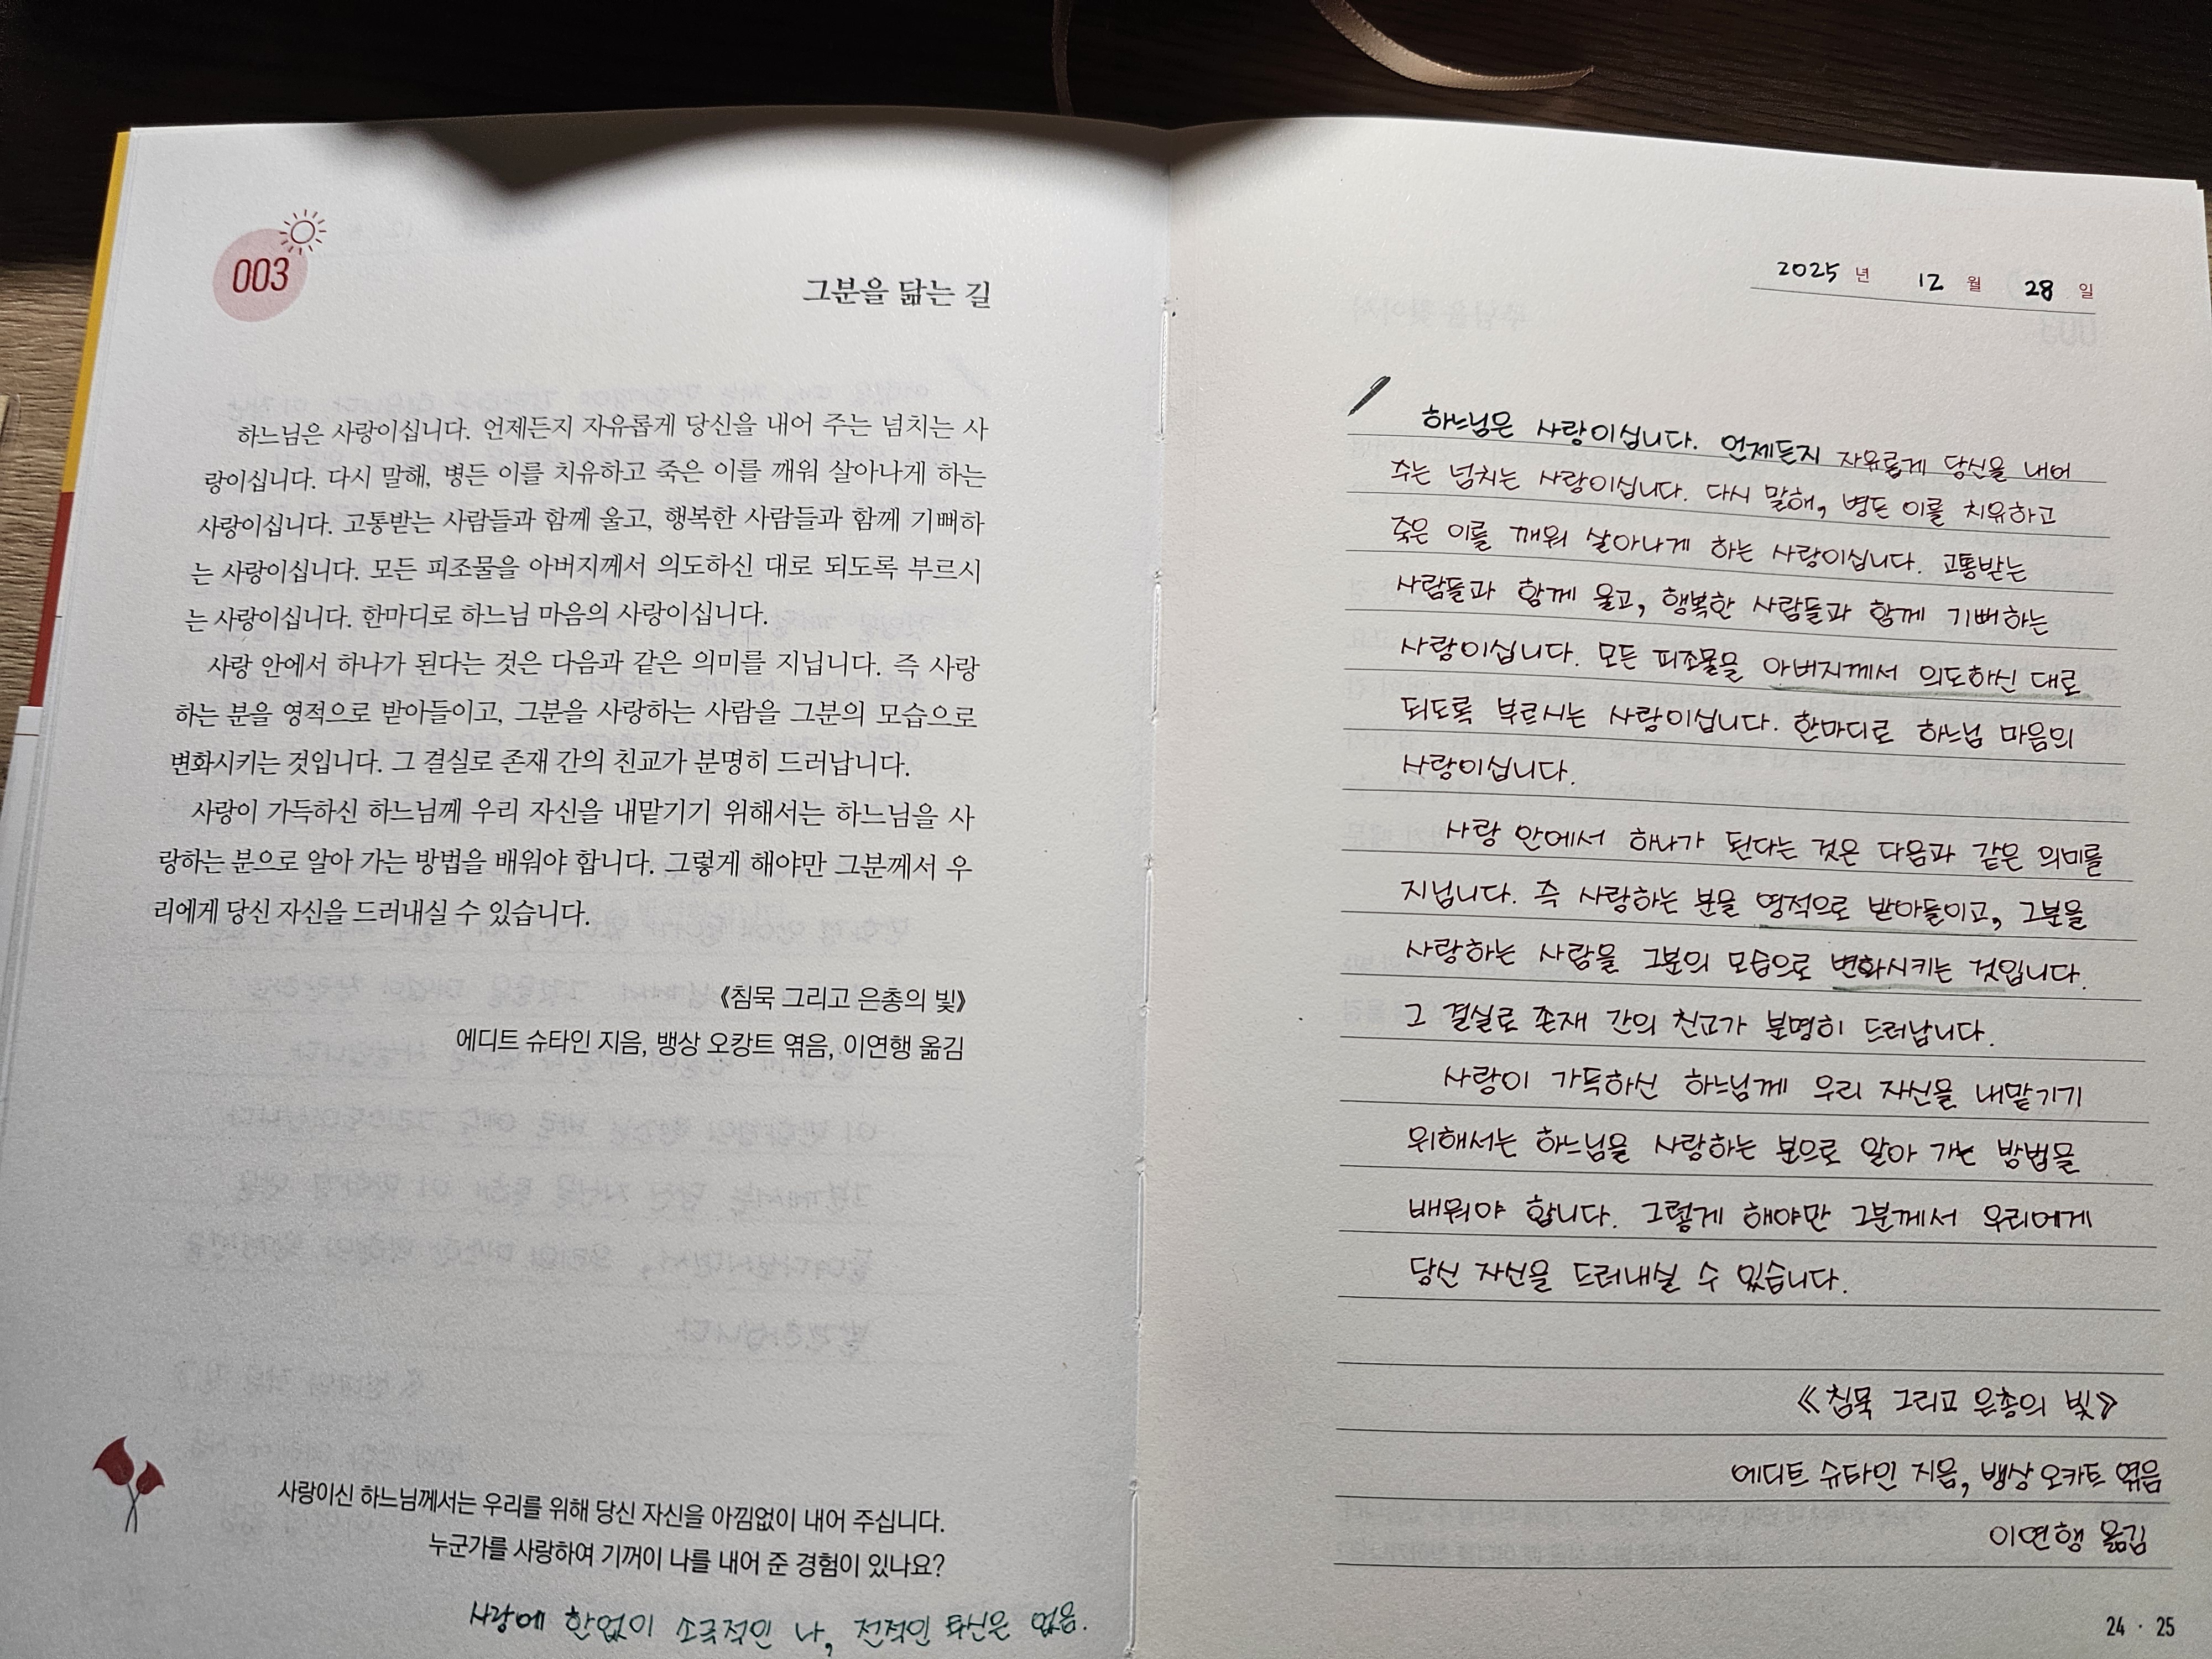 003
그분을 닮는 길
하느님은 사랑이십니다. 언제든지 자유롭게 당신을 내어 주는 넘치는 사
랑이십니다. 다시 말해, 병든 이를 치유하고 죽은 이를 깨워 살아나게 하는
사랑이십니다. 고통받는 사람들과 함께 울고, 행복한 사람들과 함께 기뻐하
는 사랑이십니다. 모든 피조물을 아버지께서 의도하신 대로 되도록 부르시
는 사랑이십니다. 한마디로 하느님 마음의 사랑이십니다.
사랑 안에서 하나가 된다는 것은 다음과 같은 의미를 지닙니다. 즉 사랑
하는 분을 영적으로 받아들이고, 그분을 사랑하는 사람을 그분의 모습으로
변화시키는 것입니다. 그 결실로 존재 간의 친교가 분명히 드러납니다.
사랑이 가득하신 하느님께 우리 자신을 내맡기기 위해서는 하느님을 사
랑하는 분으로 알아 가는 방법을 배워야 합니다. 그렇게 해야만 그분께서 우
리에게 당신 자신을 드러내실 수 있습니다.
《침묵 그리고 은총의 빛》
에디트 슈타인 지음, 뱅상 오캉트 엮음, 이연행 옮김
사랑이신 하느님께서는 우리를 위해 당신 자신을 아낌없이 내어 주십니다.
누군가를 사랑하여 기꺼이 나를 내어 준 경험이 있나요?
사랑에 한없이 소극적인 나, 전적인 투신은 없음.
2025 년 12 월 28 일
하느님은 사랑이십니다. 언제든지 자유롭게 당신을 내어
주는 넘치는 사랑이십니다. 다시 말해, 병든 이를 치유하고
죽은 이를 깨워 살아나게 하는 사랑이십니다. 고통받는
사람들과 함께 울고, 행복한 사람들과 함께 기뻐하는
사랑이십니다. 모든 피조물을 아버지께서 의도하신 대로
되도록 부르시는 사랑이십니다. 한마디로 하느님 마음의
사랑이십니다.
사랑 안에서 하나가 된다는 것은 다음과 같은 의미를
지닙니다. 즉 사랑하는 분을 영적으로 받아들이고, 그분을
사랑하는 사람을 그분의 모습으로 변화시키는 것입니다.
그 결실로 존재 간의 친교가 분명히 드러납니다.
사랑이 가득하신 하느님께 우리 자신을 내맡기기
위해서는 하느님을 사랑하는 분으로 알아 가는 방법을
배워야 합니다. 그렇게 해야만 그분께서 우리에게
당신 자신을 드러내실 수 있습니다.
《침묵 그리고 은총의 빛》
에디트 슈타인 지음, 뱅상 오카트 엮음
이연행 옮김
24 · 25